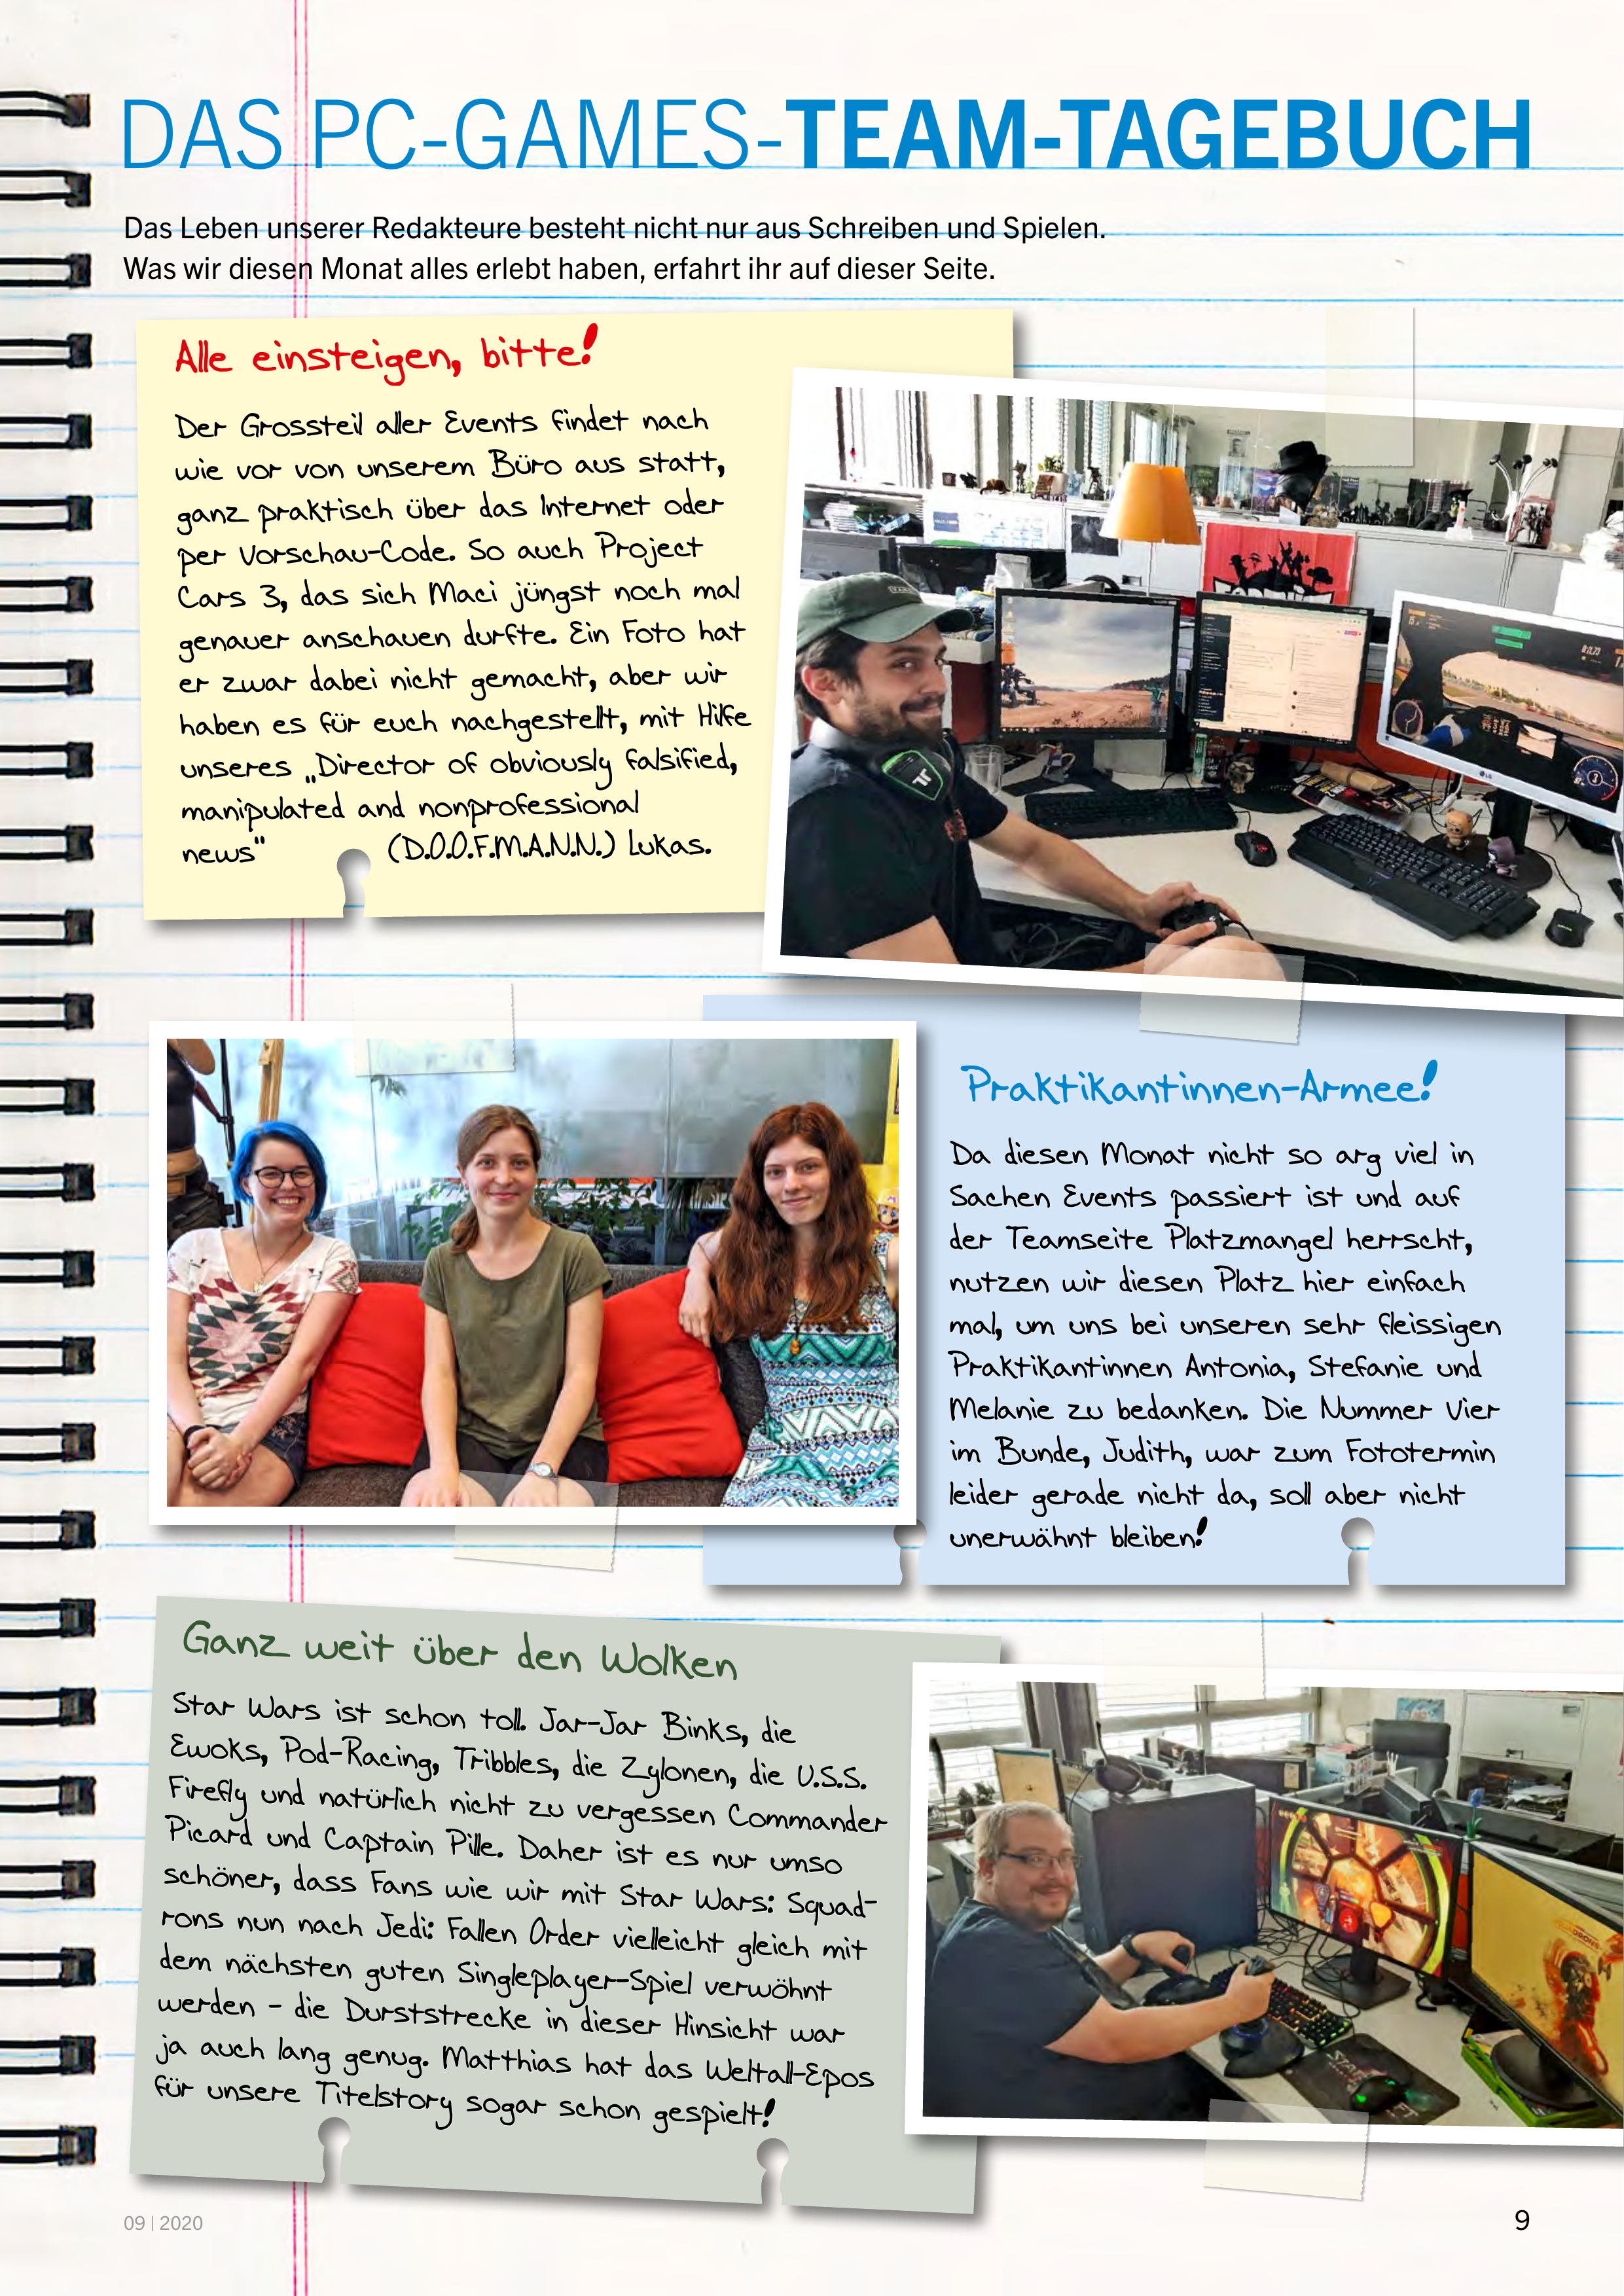 DAS PC-GAMES-TEAM-TAGEBUCH
Das Leben unserer Redakteure besteht nicht nur aus Schreiben und Spielen.
Was wir diesen Monat alles erlebt haben, erfahrt ihr auf dieser Seite.
Alle einsteigen, bitte!
Der Grossteil aller Events findet nach
wie vor von unserem Büro aus statt,
ganz praktisch über das Internet oder
per Vorschau-Code. So auch Project
Cars 3, das sich Maci jüngst noch mal
genauer anschauen durfte. Ein Foto hat
er zwar dabei nicht gemacht, aber wir
haben es für euch nachgestellt, mit Hilfe
unseres „Director of obviously falsified,
manipulated and nonprofessional
news“ (D.O.O.F.M.A.N.N.) Lukas.
Praktikantinnen-Armee!
Da diesen Monat nicht so arg viel in
Sachen Events passiert ist und auf
der Teamseite Platzmangel herrscht,
nutzen wir diesen Platz hier einfach
mal, um uns bei unseren sehr fleissigen
Praktikantinnen Antonia, Stefanie und
Melanie zu bedanken. Die Nummer Vier
im Bunde, Judith, war zum Fototermin
leider gerade nicht da, soll aber nicht
unerwähnt bleiben!
Ganz weit über den Wolken
Star Wars ist schon toll. Jar-Jar Binks, die
Ewoks, Pod-Racing, Tribbles, die Zylonen, die U.S.S.
Firefly und natürlich nicht zu vergessen Commander
Picard und Captain Pille. Daher ist es nur umso
schöner, dass Fans wie wir mit Star Wars: Squad-
rons nun nach Jedi: Fallen Order vielleicht gleich mit
dem nächsten guten Singleplayer-Spiel verwöhnt
werden – die Durststrecke in dieser Hinsicht war
ja auch lang genug. Matthias hat das Weltall-Epos
für unsere Titelstory sogar schon gespielt!
09 | 2020
9